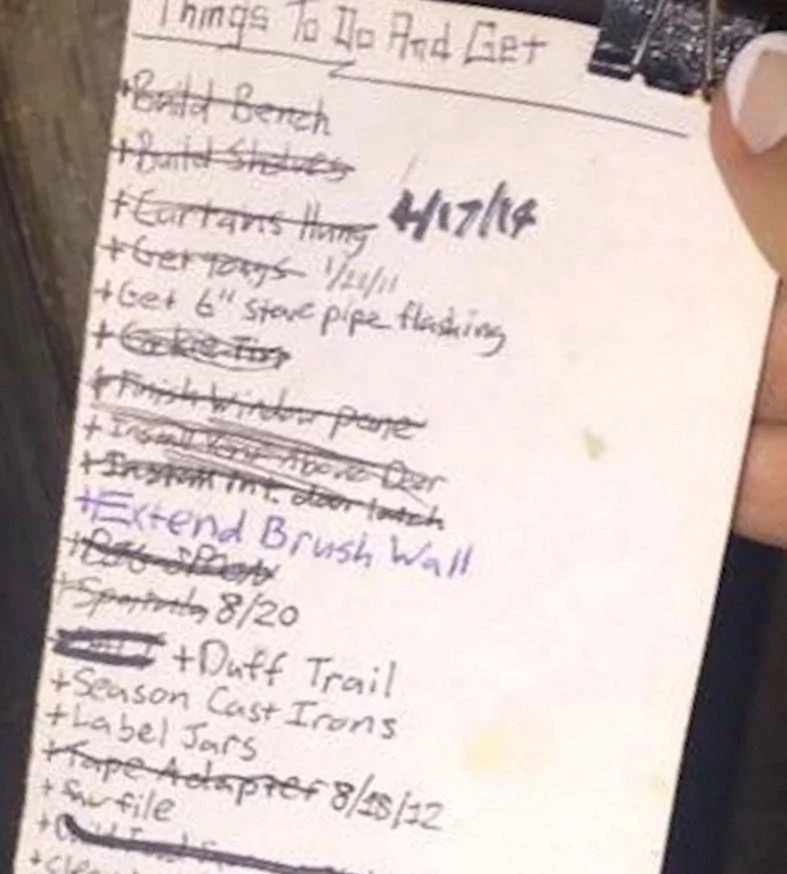 Things To Do And Get
+Build Bench
+Build Shelves
+Curtains Hung 4/17/14
+Get
+Get 6" stove pipe flashing
+
+Finish Window pane
+Install Vent Above Door
+Install Int. door latch
+Extend Brush Wall
+
8/20
+Duff Trail
+Season Cast Irons
+Label Jars
+Tape Adapter 8/18/12
+ file
+
+clean